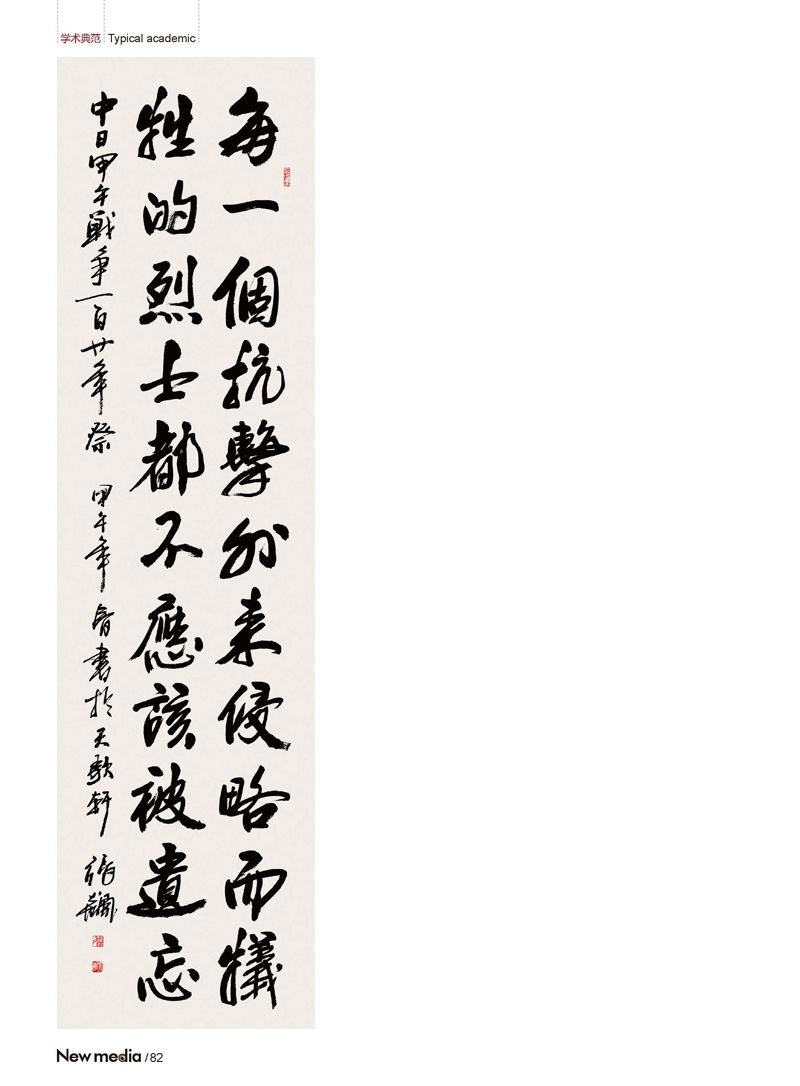 学术典范 Typical academic
每一個抗擊外来侵略而犧
牲的烈士都不應該被遺忘
中日甲午戰爭一百廿年祭 甲午年 春書於天歌軒
New media / 82